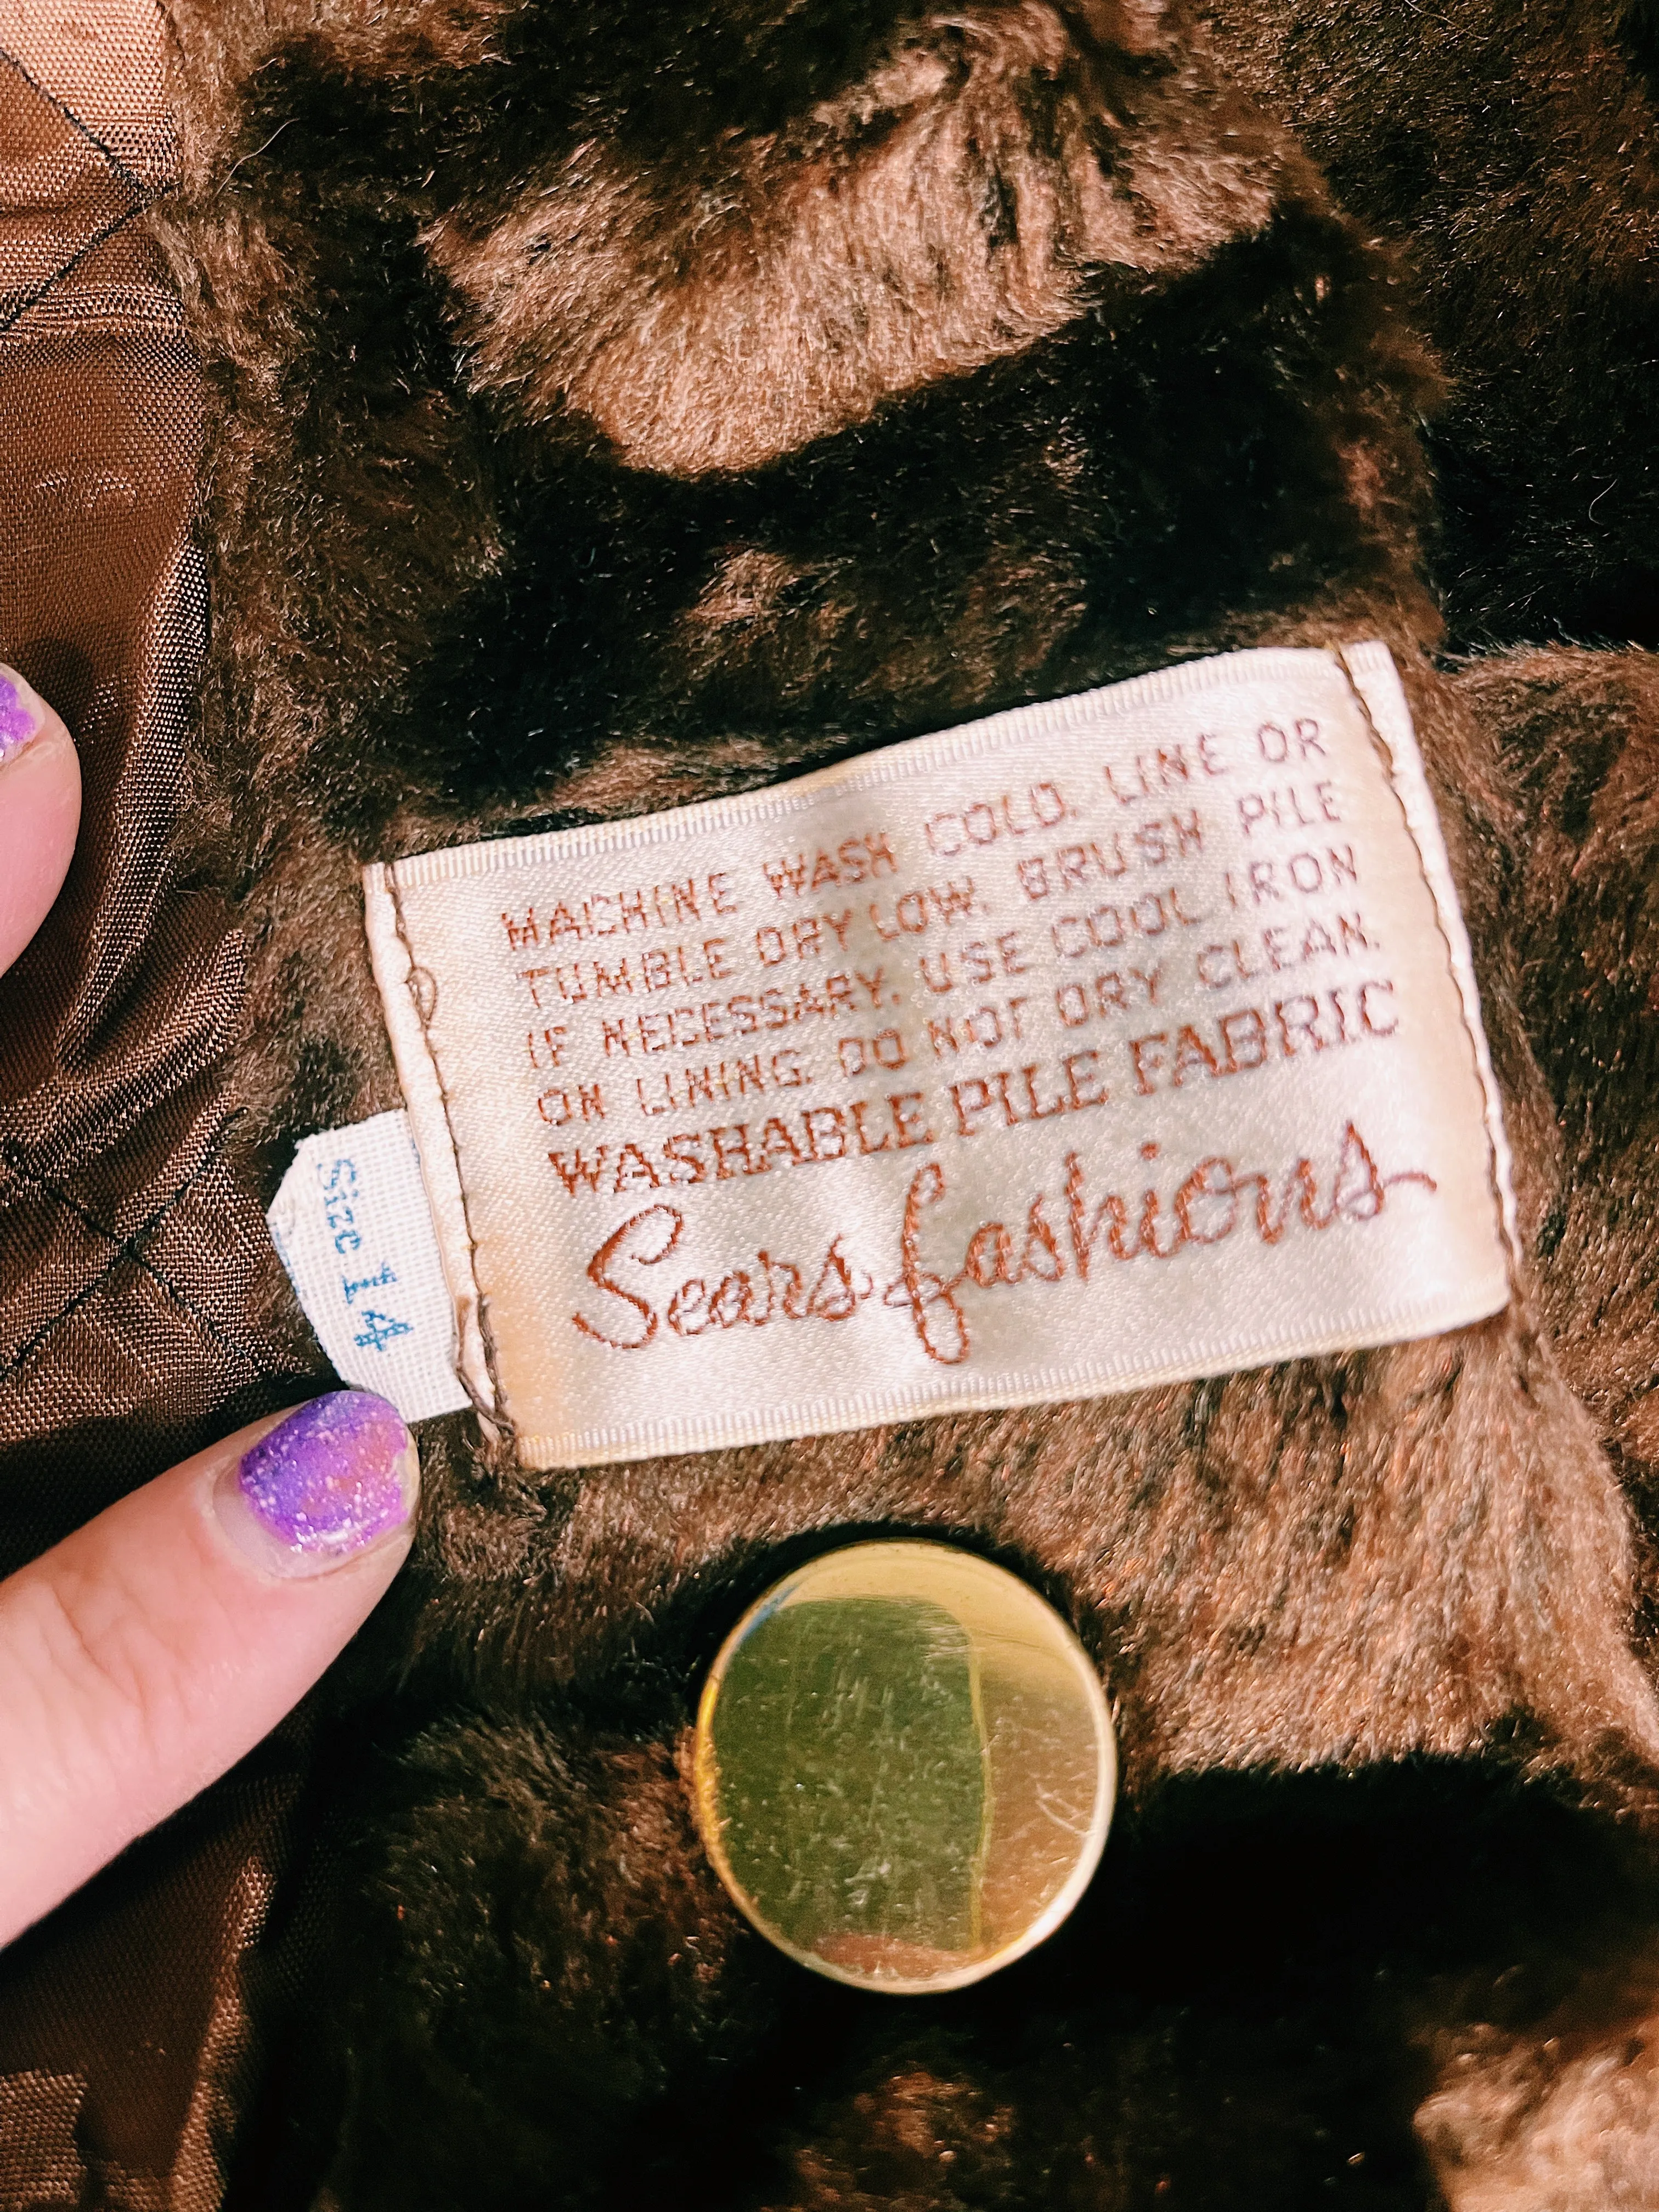 MACHINE WASH COLD. LINE OR
TUMBLE DRY LOW. BRUSH PILE
IF NECESSARY. USE COOL IRON
ON LINING. DO NOT DRY CLEAN.
WASHABLE PILE FABRIC
Sears fashions
Size 14